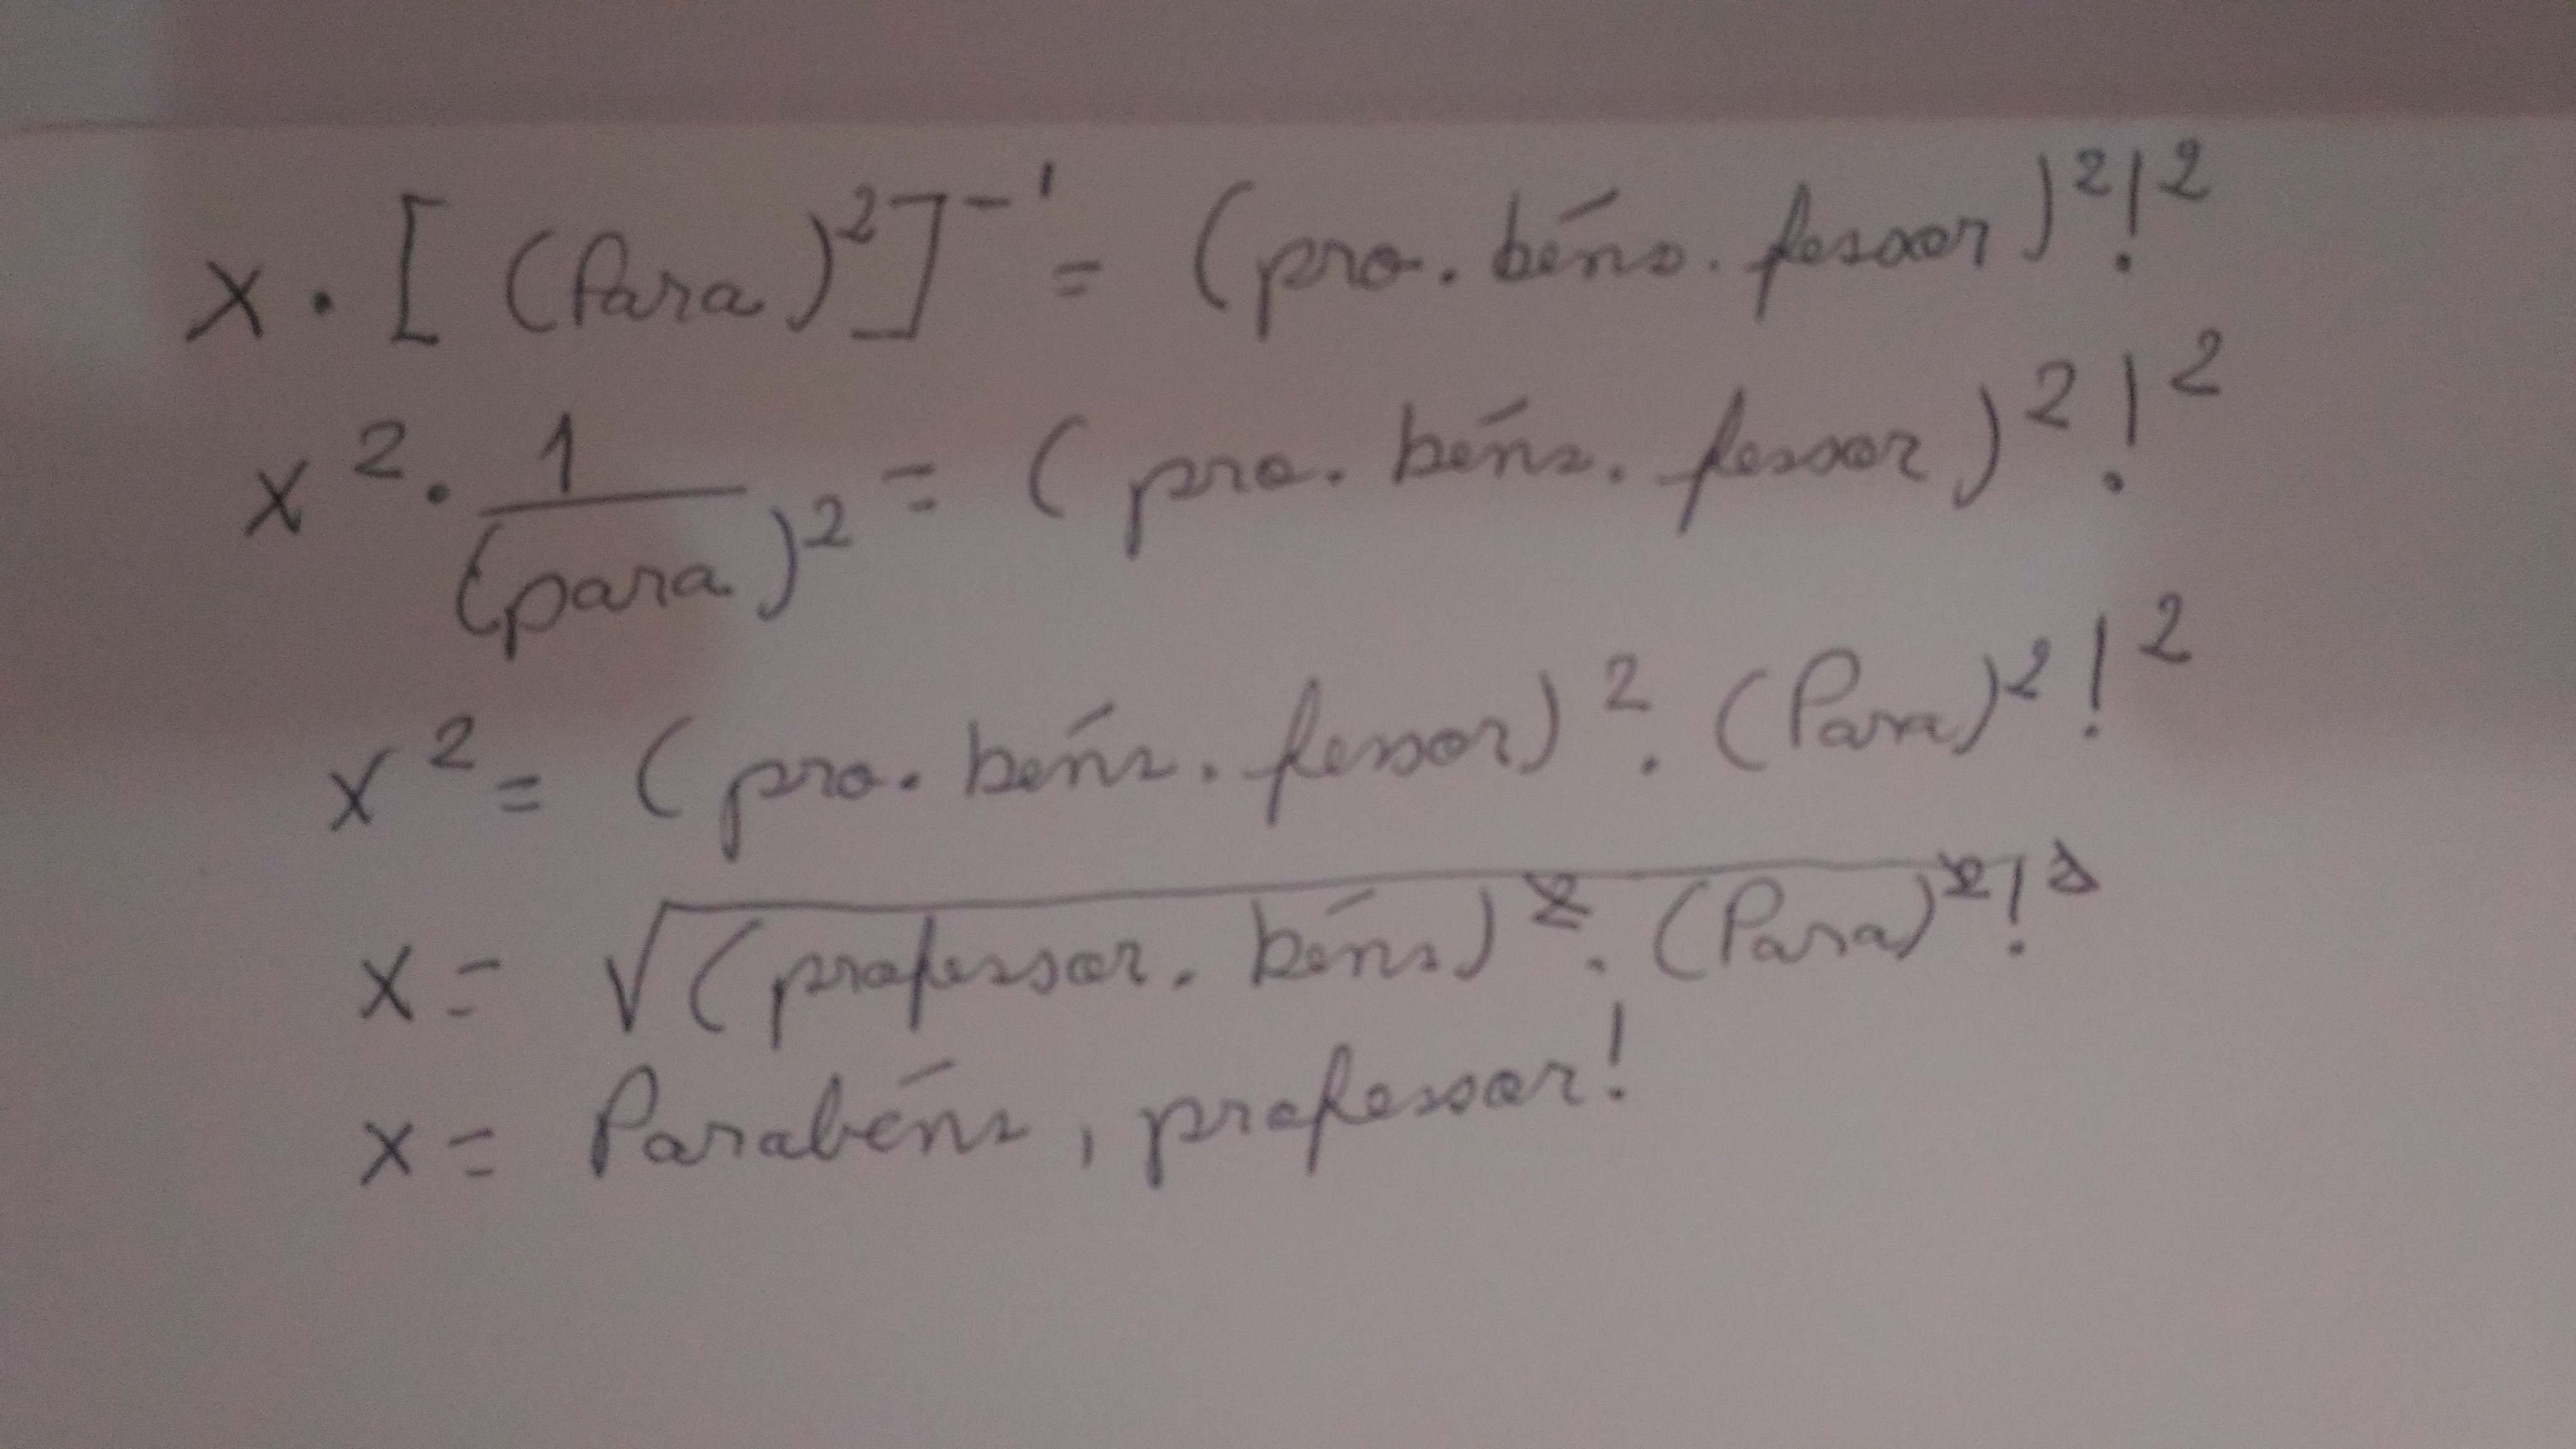 x · [(Para)²]⁻¹ = (pro. béns. fessor)²!²
x² · 1/(para)² = (pro. béns. fessor)²!²
x² = (pro. béns. fessor)² · (Para)²!²
x = √(professor. béns)² · (Para)²!²
x = Parabéns, professor!